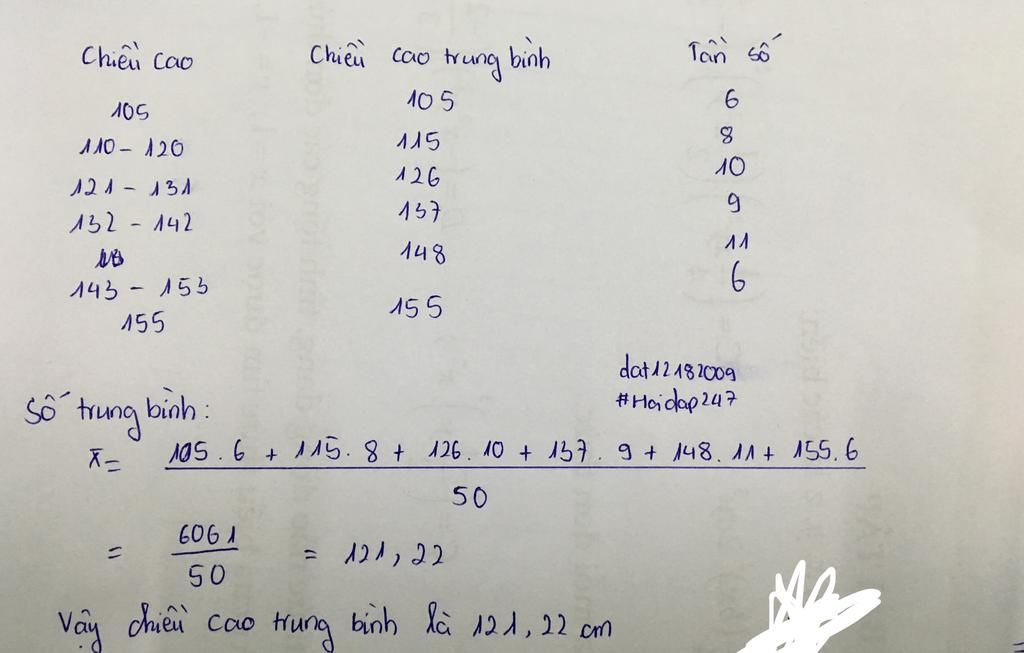 Chiều cao Chiều cao trung bình Tần số
105 105 6
110 - 120 115 8
121 - 131 126 10
132 - 142 137 9
143 - 153 148 11
155 155 6
dat12182009
#Hoidap247
Số trung bình:
x̄ = 105 . 6 + 115 . 8 + 126 . 10 + 137 . 9 + 148 . 11 + 155 . 6
50
= 6061 / 50 = 121,22
Vậy chiều cao trung bình là 121,22 cm